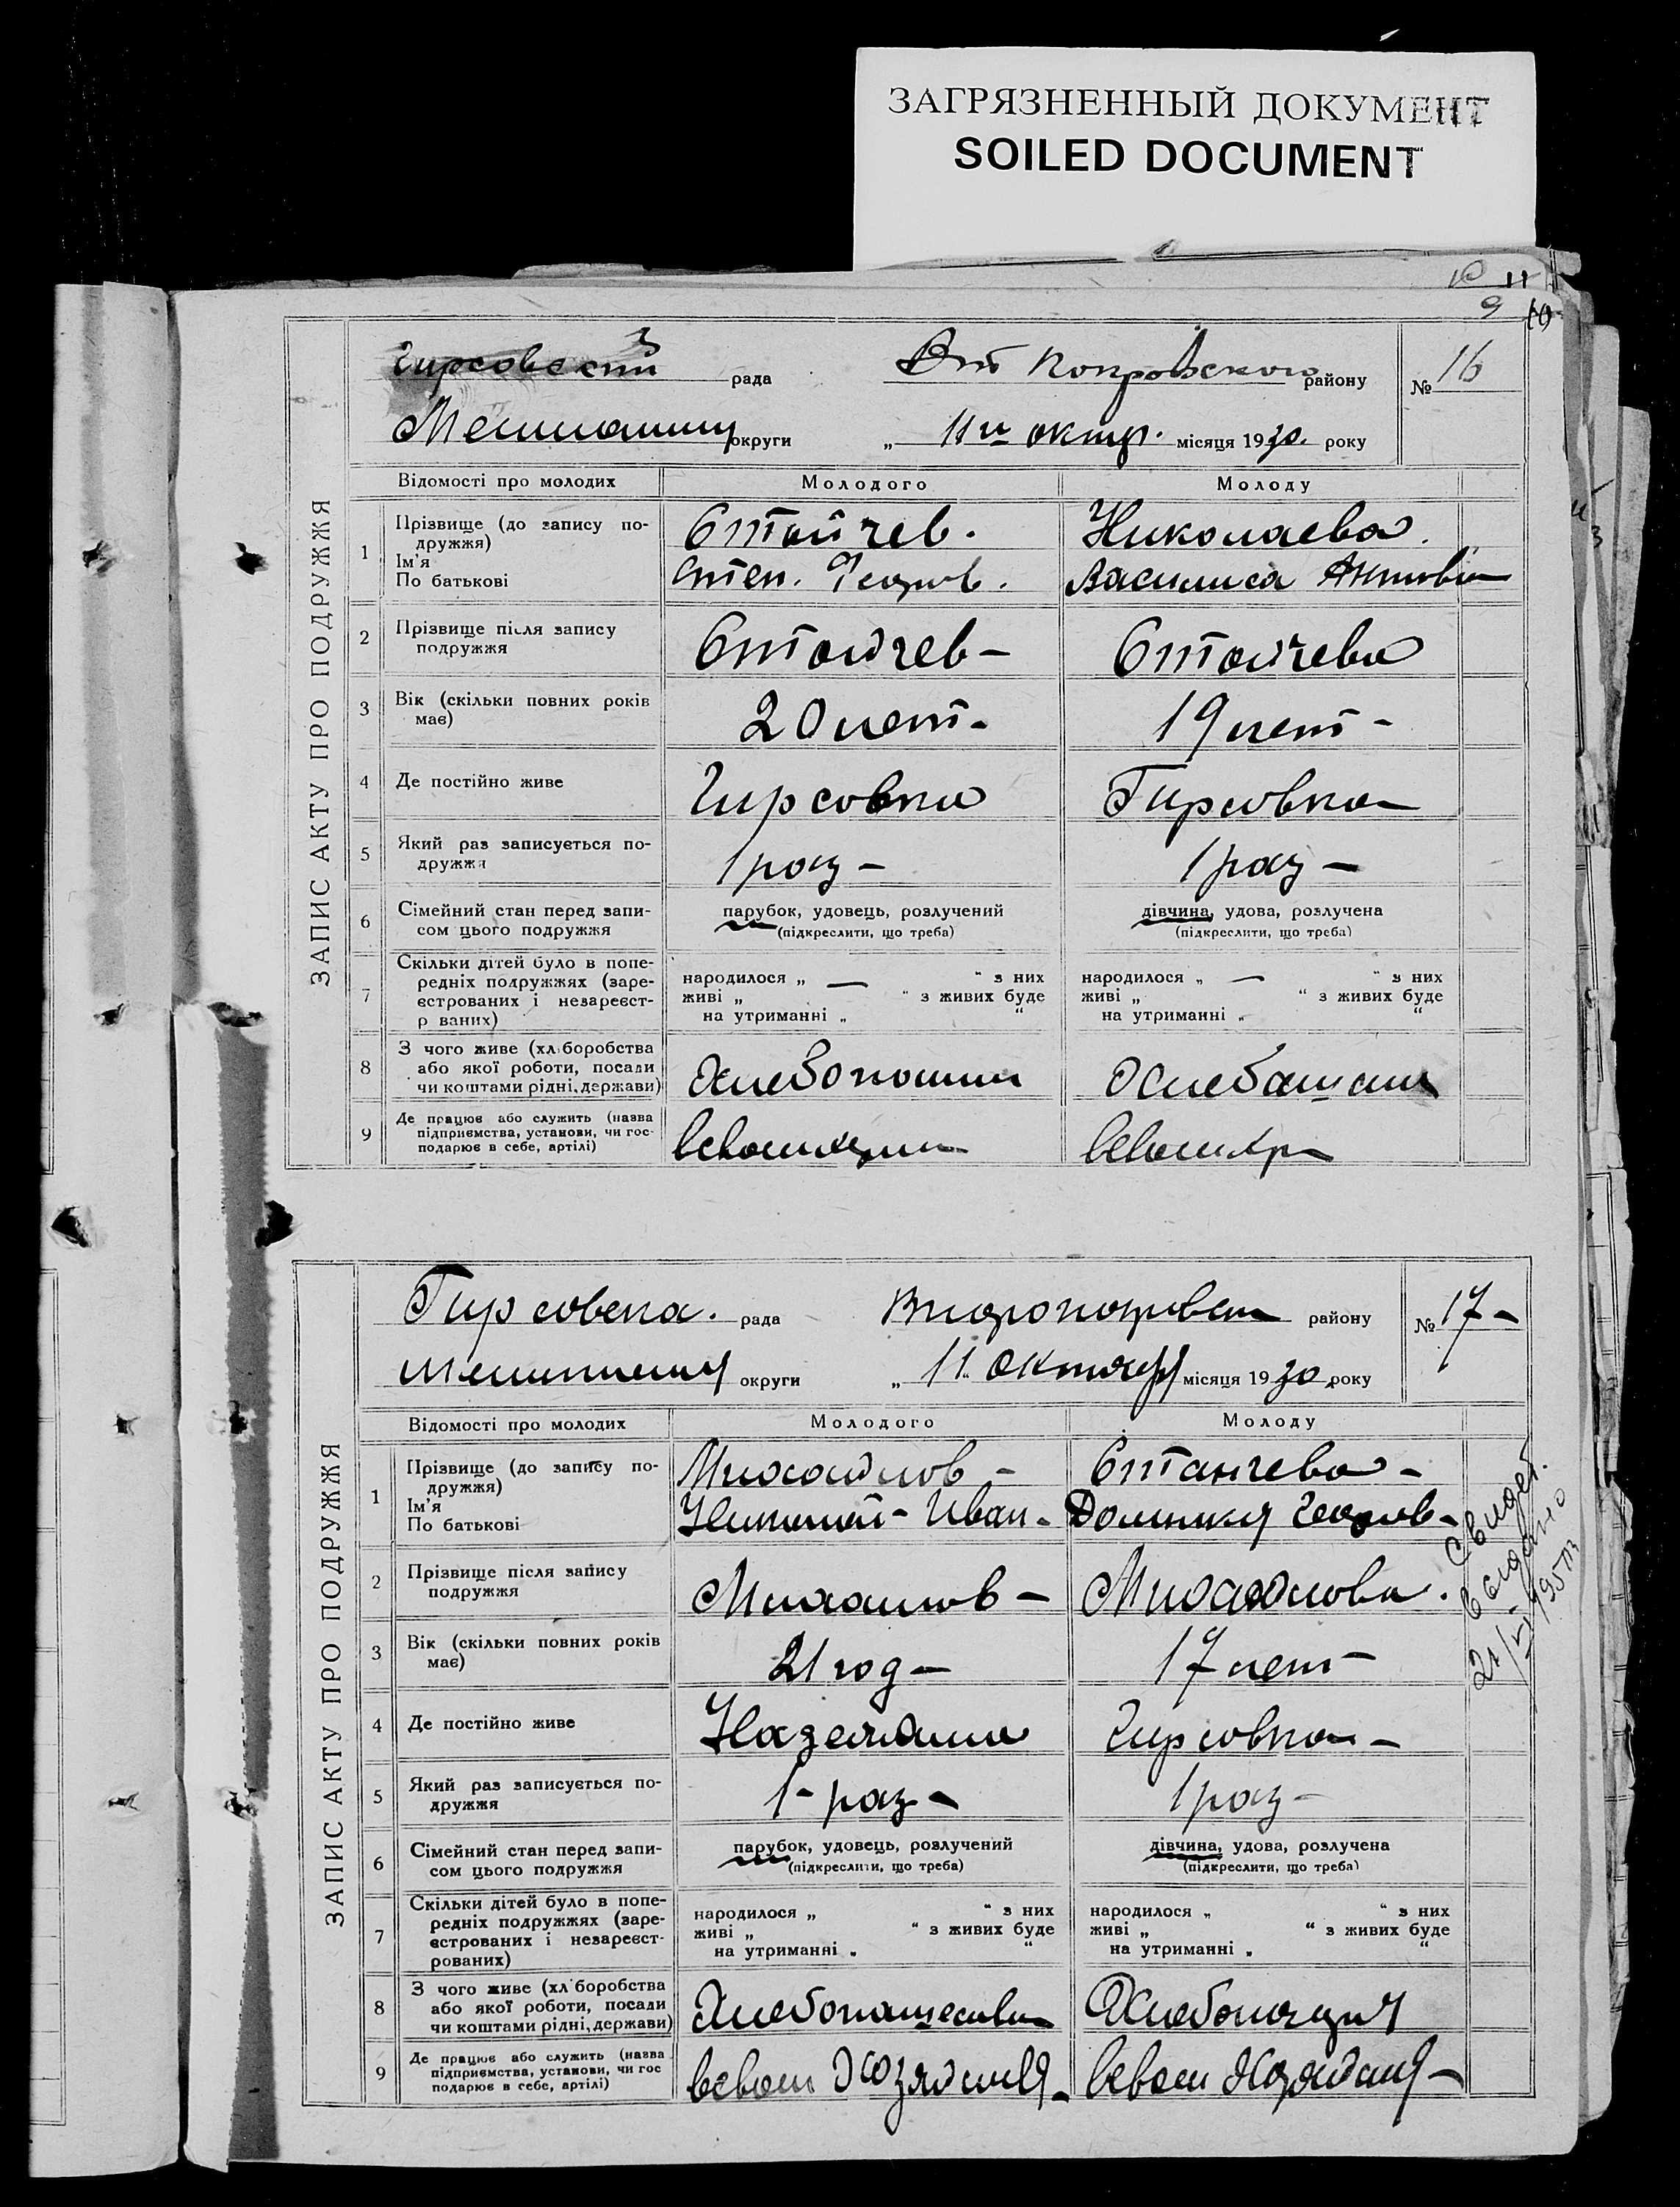 ЗАГРЯЗНЕННЫЙ ДОКУМЕНТ
SOILED DOCUMENT
10 11
9 10
ЗАПИС АКТУ ПРО ПОДРУЖЖЯ
Гирсовский рада Вт Покровского району № 16
округи „ 11го октяр. місяця 1930. року
Відомості про молодих Молодого Молоду
1 Прізвище (до запису по-
дружжя)
Ім'я
По батькові
Стойчев. Николаева.
Степ. Георгов. Василиса
2 Прізвище після запису
подружжя
Стойчев – Стойчева
3 Вік (скільки повних років
має)
20 лет – 19 лет –
4 Де постійно живе Гирсовка Гирсовка
5 Який раз записується по-
дружжя
1 раз – 1 раз –
6 Сімейний стан перед запи-
сом цього подружжя
парубок, удовець, розлучений дівчина, удова, розлучена
(підкреслити, що треба) (підкреслити, що треба)
7 Скільки дітей було в попе-
редніх подружжях (заре-
єстрованих і незареєст-
р ваних)
народилося „ — “ з них народилося „ — “ з них
живі „ “ з живих буде живі „ “ з живих буде
на утриманні „ “ на утриманні „ “
8 З чого живе (хл боробства
або якої роботи, посади
чи коштами рідні, держави)
9 Де працює або служить (назва
підприємства, установи, чи гос-
подарює в себе, артілі)
ЗАПИС АКТУ ПРО ПОДРУЖЖЯ
Гирсовска. рада району № 17 –
округи „ 11 “ Октября місяця 1930 року
Відомості про молодих Молодого Молоду
1 Прізвище (до запису по-
дружжя)
Ім'я
По батькові
Михайлов – Станчева –
Николай – Иван – Георгов –
2 Прізвище після запису
подружжя
Михаилов – Михайлова.
3 Вік (скільки повних років
має)
21 год – 17 лет –
4 Де постійно живе Гирсовка –
5 Який раз записується по-
дружжя
1 – раз – 1 раз –
6 Сімейний стан перед запи-
сом цього подружжя
парубок, удовець, розлучений дівчина, удова, розлучена
(підкреслити, що треба) (підкреслити, що треба)
7 Скільки дітей було в попе-
редніх подружжях (заре-
єстрованих і незареєст-
рованих)
народилося „ “ з них народилося „ “ з них
живі „ “ з живих буде живі „ “ з живих буде
на утриманні „ “ на утриманні „ “
8 З чого живе (хл боробства
або якої роботи, посади
чи коштами рідні, держави)
9 Де працює або служить (назва
підприємства, установи, чи гос
подарює в себе, артілі)
Свидет.
выдано